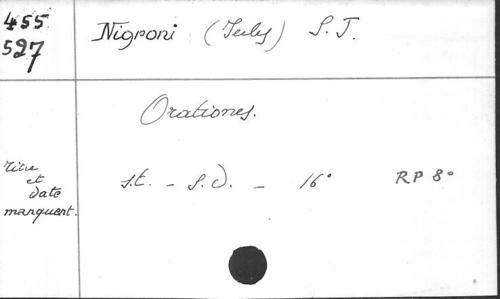 455
527
Nigroni (Jules) S. J.
Orationes.
titre
et
date
manquent.
s.t. – s.d. – 16° RP 8°